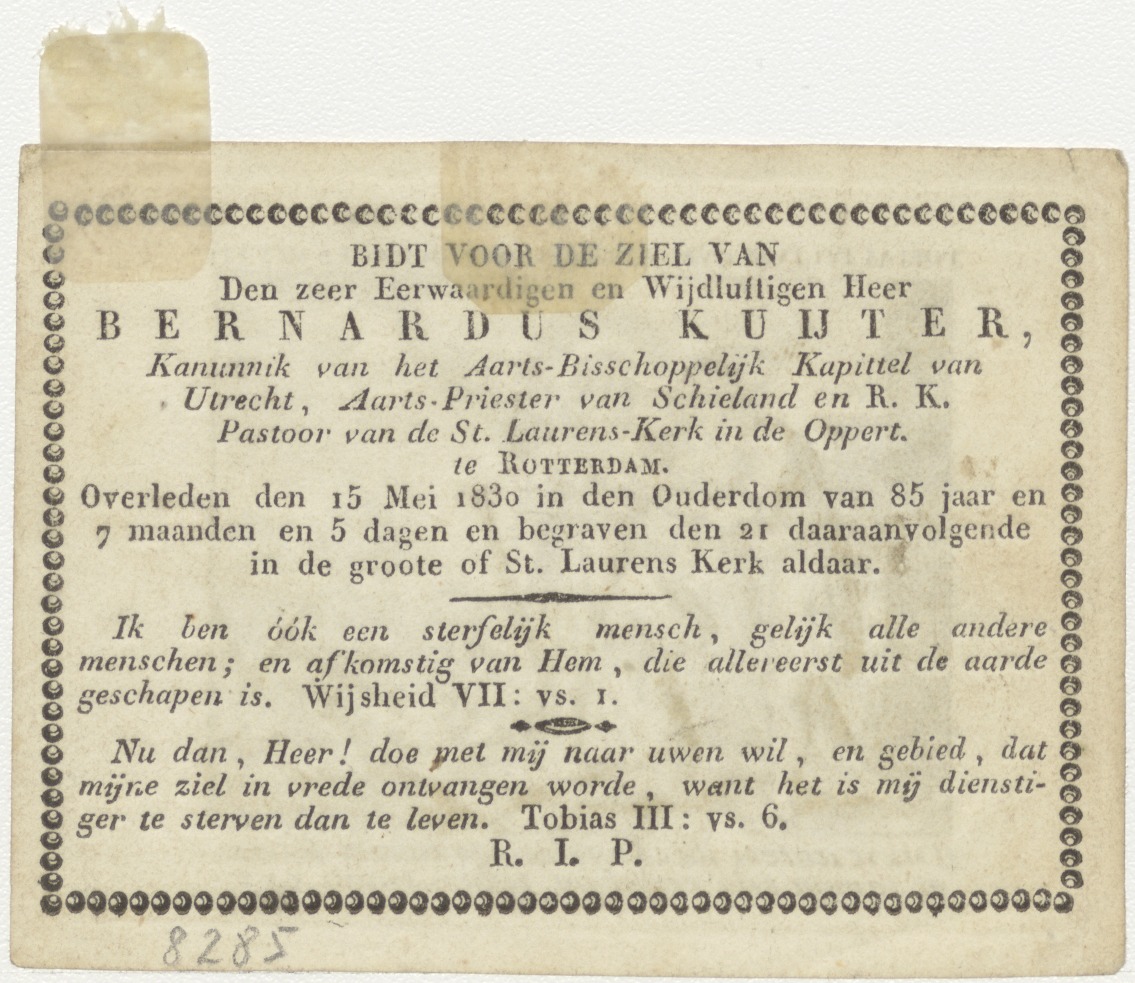 BIDT VOOR DE ZIEL VAN
Den zeer Eerwaardigen en Wijdluftigen Heer
BERNARDUS KUIJTER,
Kanunnik van het Aarts-Bisschoppelijk Kapittel van
Utrecht, Aarts-Priester van Schieland en R. K.
Pastoor van de St. Laurens-Kerk in de Oppert.
te ROTTERDAM.
Overleden den 15 Mei 1830 in den Ouderdom van 85 jaar en
7 maanden en 5 dagen en begraven den 21 daaraanvolgende
in de groote of St. Laurens Kerk aldaar.
Ik ben óók een sterfelijk mensch, gelijk alle andere
menschen; en afkomstig van Hem, die allereerst uit de aarde
geschapen is. Wijsheid VII: vs. 1.
Nu dan, Heer! doe met mij naar uwen wil, en gebied, dat
mijne ziel in vrede ontvangen worde, want het is mij diensti-
ger te sterven dan te leven. Tobias III: vs. 6.
R. I. P.
8285